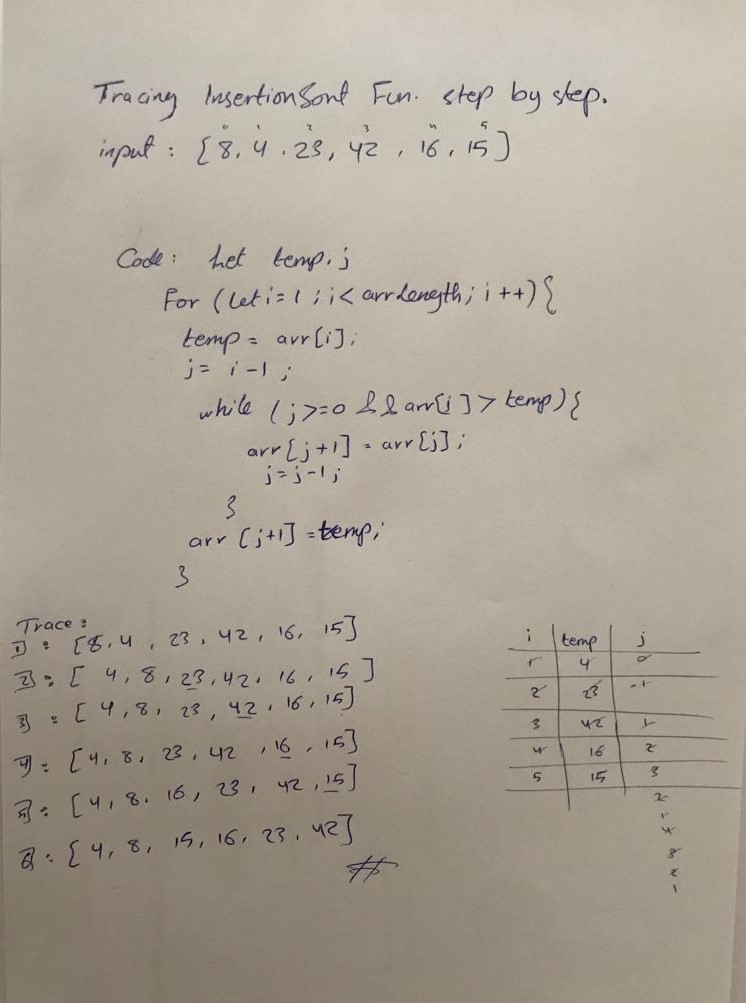 Tracing InsertionSort Fun. step by step.
0 1 2 3 4 5
input : [8, 4 . 23, 42 , 16, 15]
Code : Let temp, j
For (Let i = 1 ; i < arr.length; i ++) {
temp = arr[i];
j = i -1 ;
while (j >= 0 && arr[j] > temp) {
arr[j+1] = arr[j];
j = j-1;
}
arr [j+1] = temp;
}
Trace :
1) : [8, 4 , 23 , 42 , 16, 15]
2) : [ 4, 8, 23, 42, 16, 15 ]
3) : [ 4, 8, 23, 42, 16, 15]
4) : [4, 8, 23, 42 , 16 , 15]
5) : [4, 8, 16, 23, 42, 15]
6) : [4, 8, 15, 16, 23, 42]
i temp j
1 4 0
2 23 -1
3 42 1
4 16 2
5 15 3
2
1
4
3
2
1